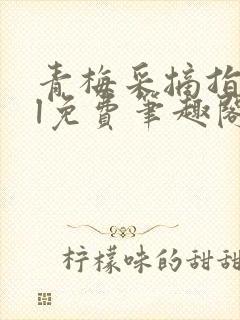 青梅采摘指
l免费笔趣阁
柠檬味的甜甜